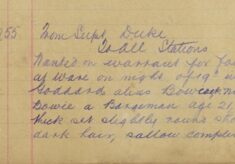 955 From Supt Duke
To All Stations
Wanted on warrant for
at Ware on night of 19th
Goddard alias
Bowie a Bargeman age 21,
thick set slightly round
dark hair, sallow